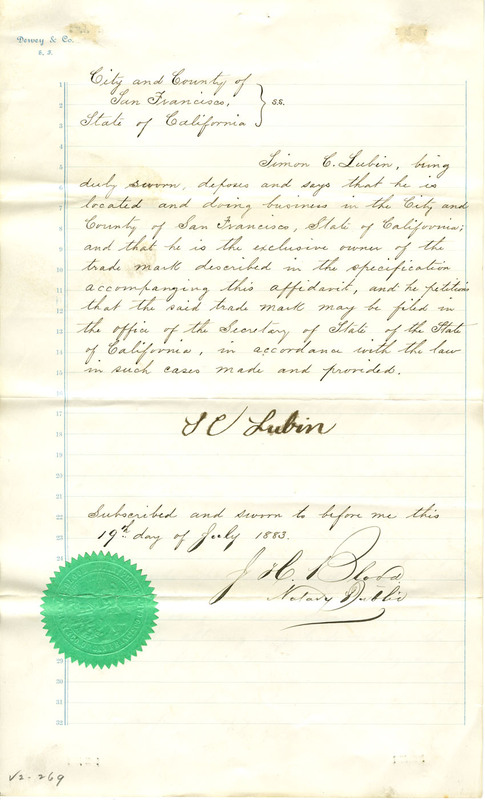 Dewey & Co.
S. F.
City and County of
San Francisco, } s.s.
State of California
Simon C. Lubin, being
duly sworn, deposes and says that he is
located and doing business in the City and
County of San Francisco, State of California;
and that he is the exclusive owner of the
trade mark described in the specification
accompanging this affidavit, and he petitions
that the said trade mark may be filed in
the office of the Secretary of State of the State
of California, in accordance with the law
in such cases made and provided.
S C Lubin
Subscribed and sworn to before me this
19th day of July 1883.
J. H. Blood
Notary Public
V2-269